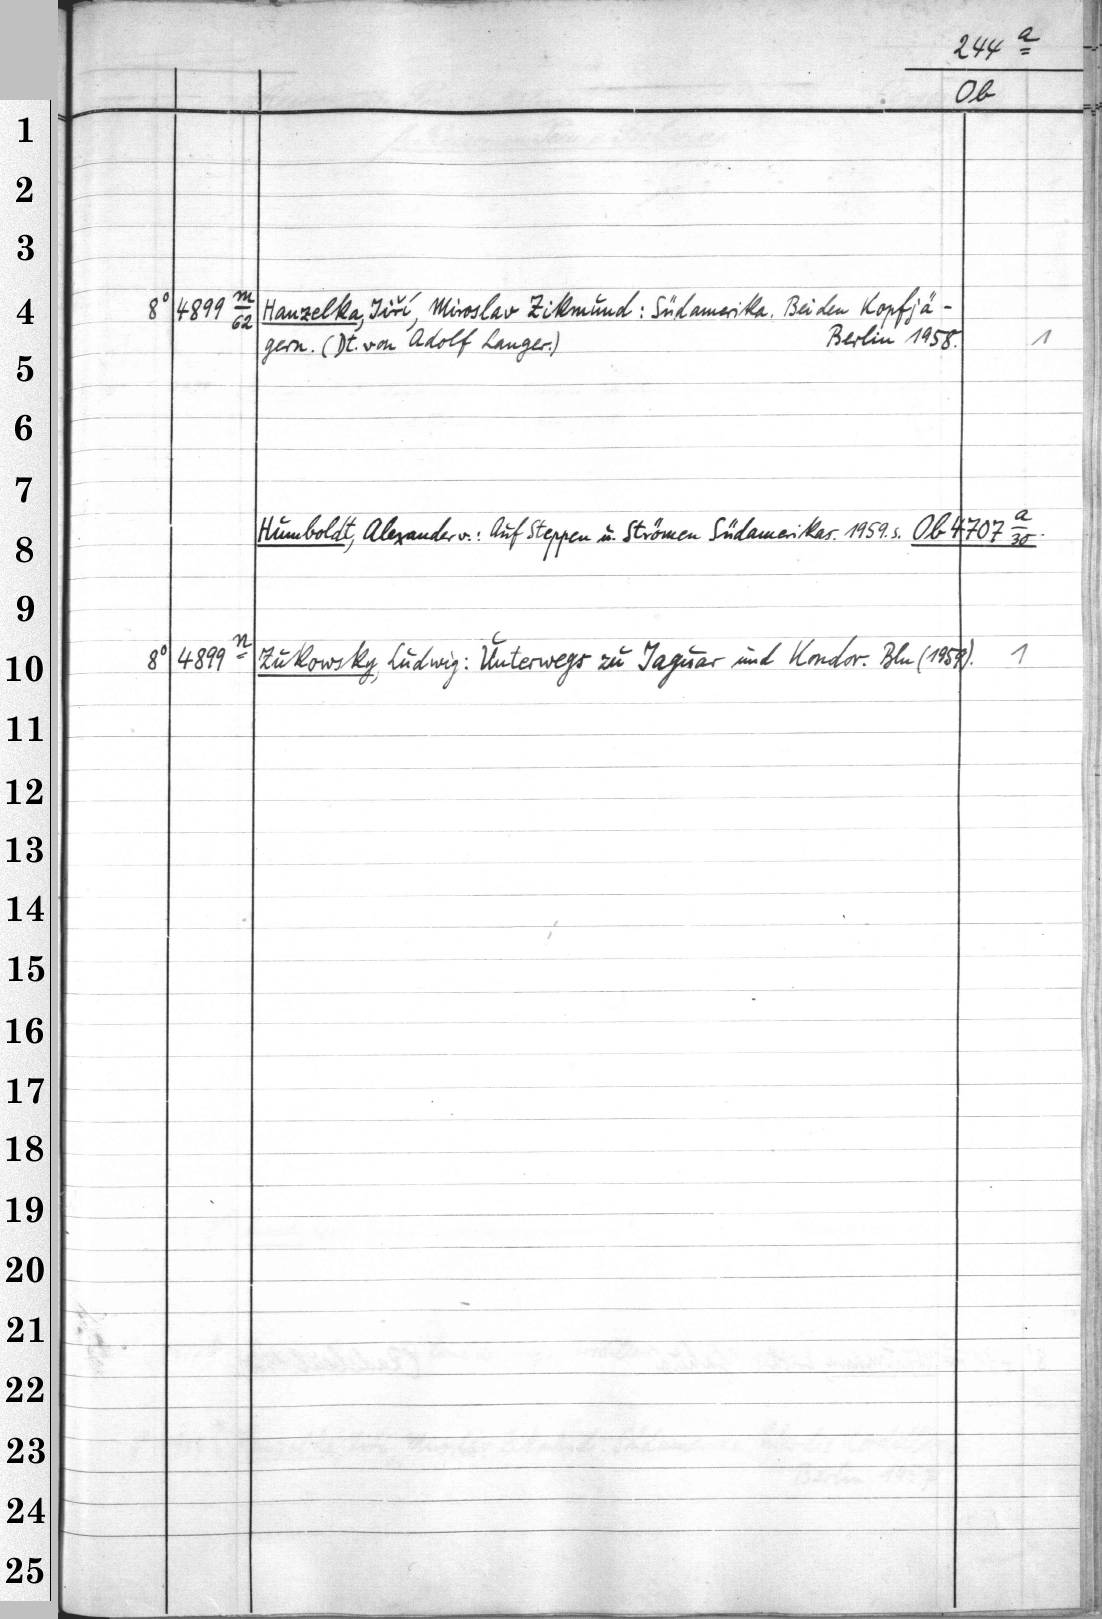 244 a
Ob
1
2
3
4 8° 4899 m/62 Hanzelka, Jiří, Miroslav Zikmund: Südamerika. Bei den Kopfjä-
gern. (Dt. von Adolf Langer.) Berlin 1958. 1
5
6
7
8 Humboldt, Alexander v.: Auf Steppen u. Strömen Südamerikas. 1959. s. Ob 4707 a/30.
9
10 8° 4899 n Zukowsky, Ludwig: Unterwegs zu Jaguar und Kondor. Bln (1959). 1
11
12
13
14
15
16
17
18
19
20
21
22
23
24
25